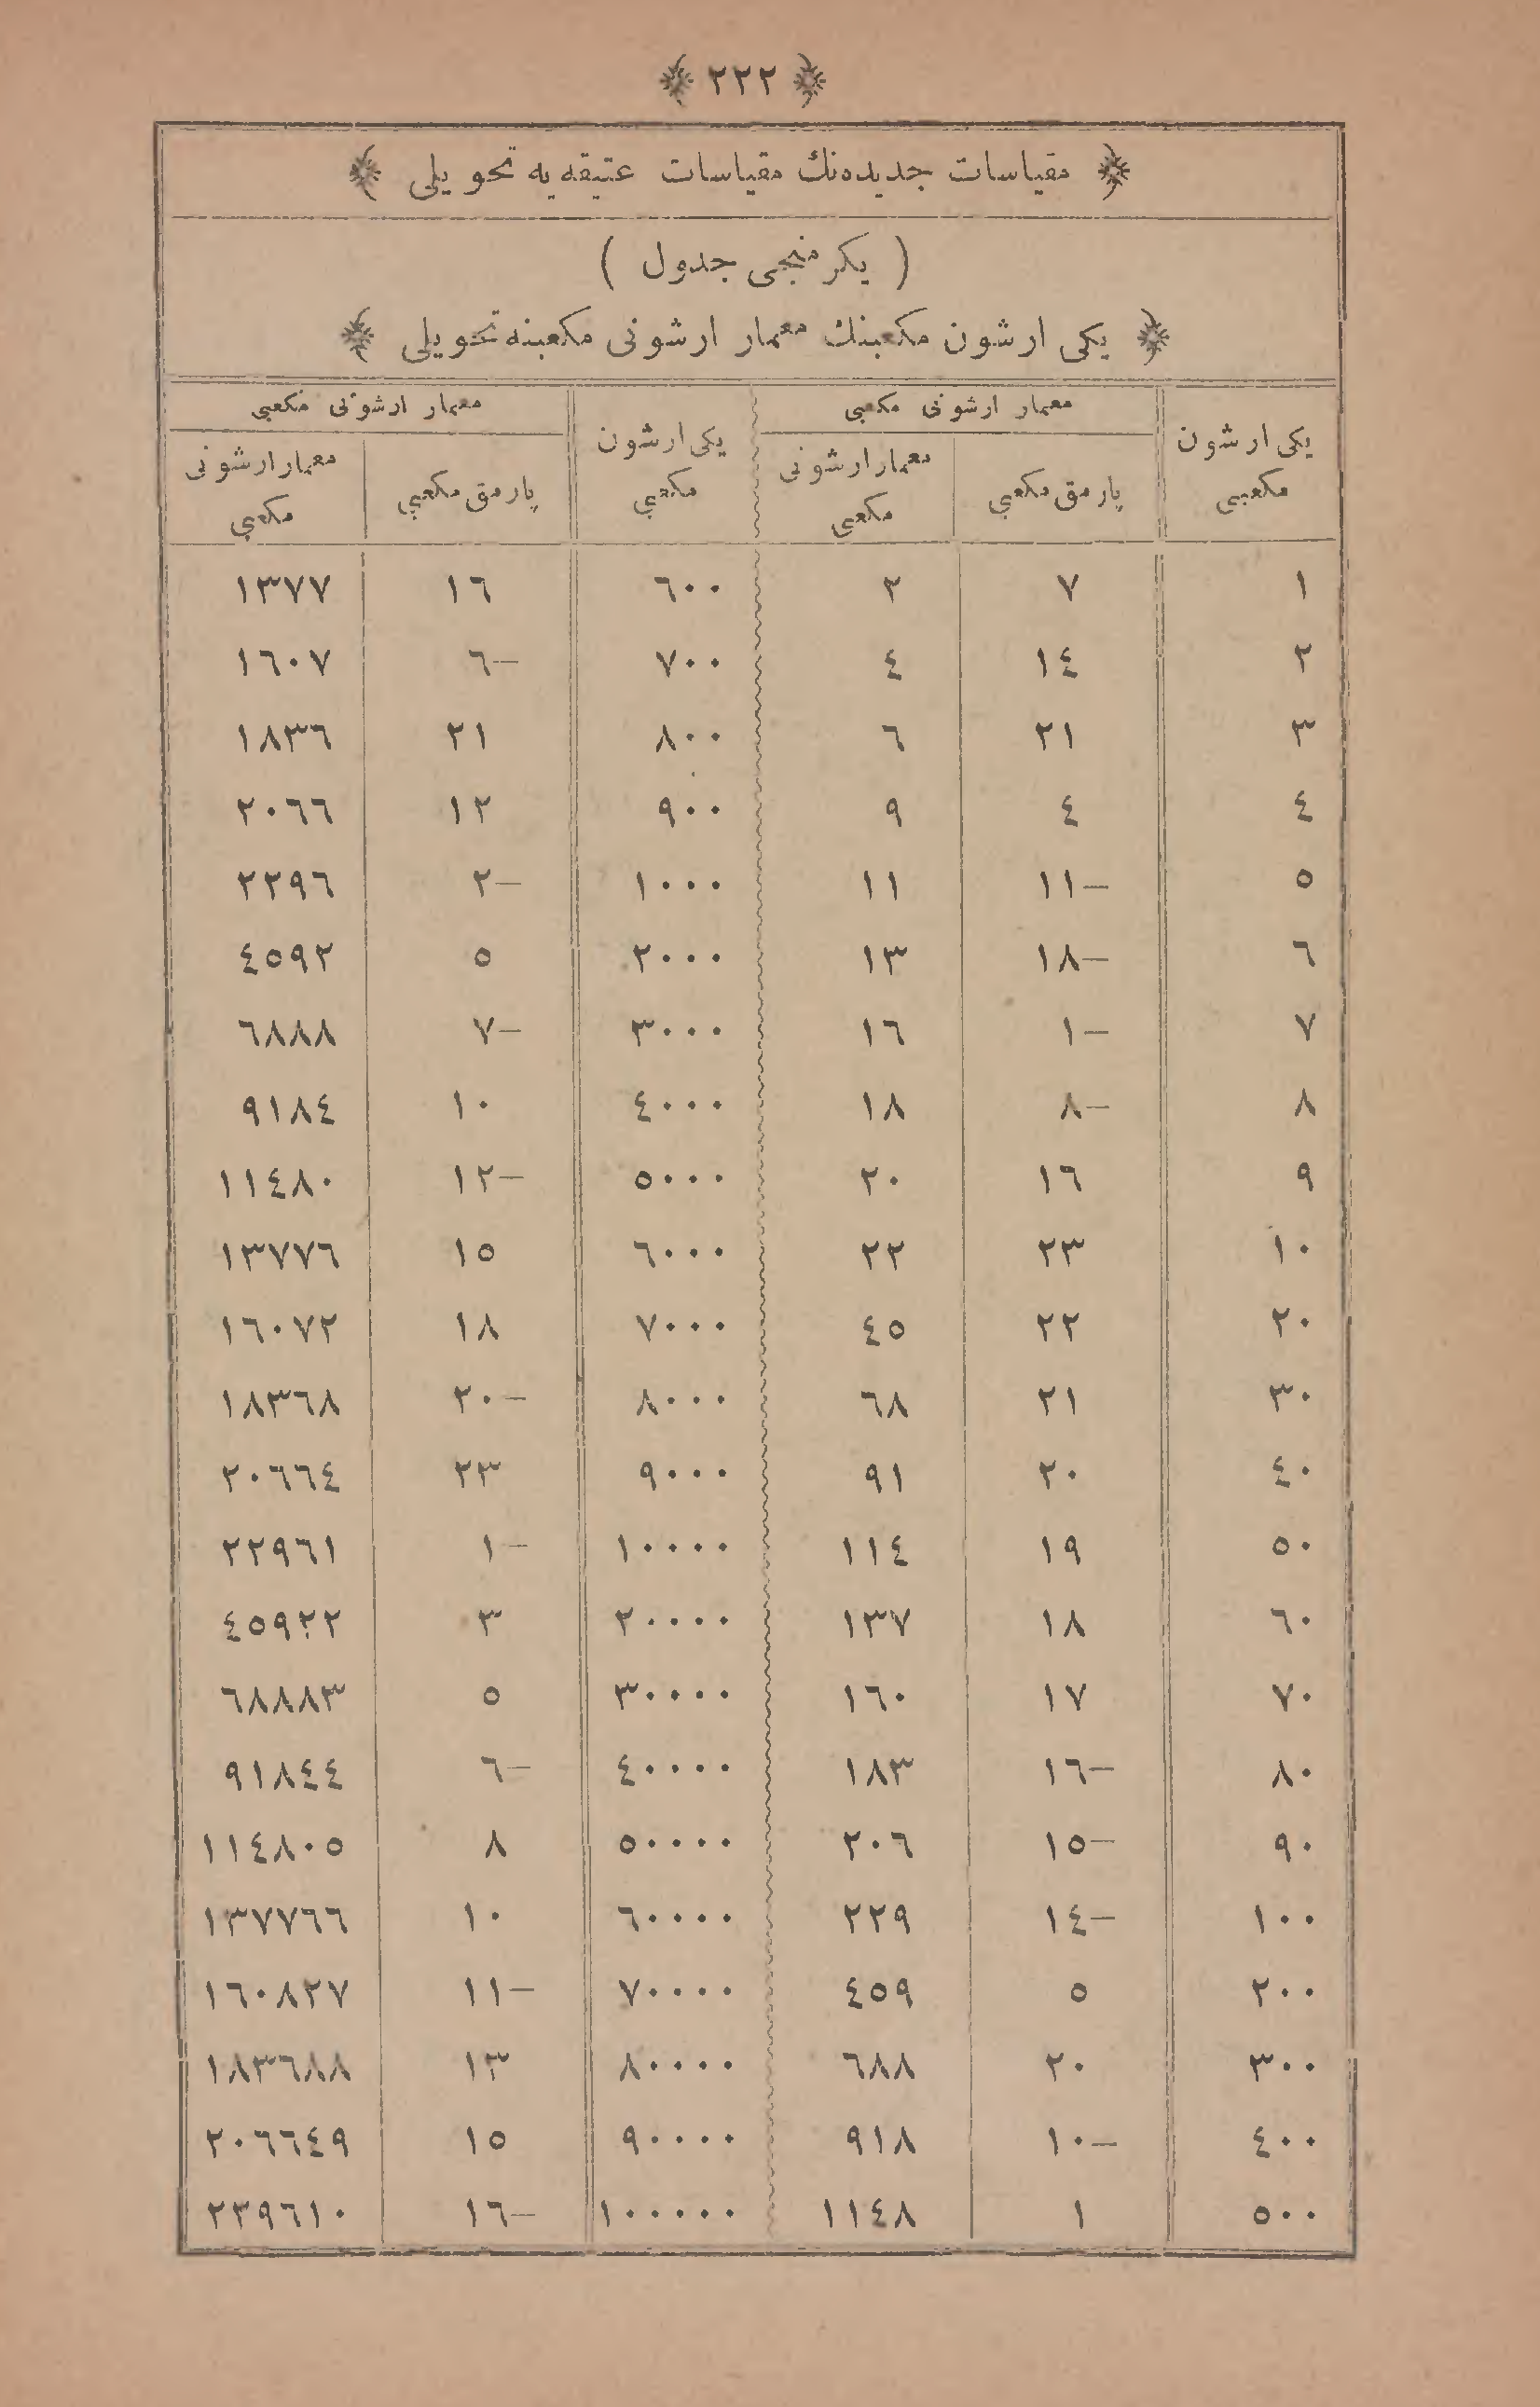 ﴿ ٢٢٢ ﴾
﴿ مقياسات جديده‌نك مقياسات عتيقه‌يه تحويلى ﴾
( يكرمنجى جدول )
﴿ يكى ارشون مكعبنك معمار ارشونى مكعبنه تحويلى ﴾
يكى ارشون مكعبى | معمار ارشونى مكعبى | يكى ارشون مكعبى | معمار ارشونى مكعبى
پارمق مكعبى | معمار ارشونى مكعبى | پارمق مكعبى | معمار ارشونى مكعبى
١ | ٧ | ٢ | ٦٠٠ | ١٦ | ١٣٧٧
٢ | ١٤ | ٤ | ٧٠٠ | ٦— | ١٦٠٧
٣ | ٢١ | ٦ | ٨٠٠ | ٢١ | ١٨٣٦
٤ | ٤ | ٩ | ٩٠٠ | ١٢ | ٢٠٦٦
٥ | ١١— | ١١ | ١٠٠٠ | ٢— | ٢٢٩٦
٦ | ١٨— | ١٣ | ٢٠٠٠ | ٥ | ٤٥٩٢
٧ | ١— | ١٦ | ٣٠٠٠ | ٧— | ٦٨٨٨
٨ | ٨— | ١٨ | ٤٠٠٠ | ١٠ | ٩١٨٤
٩ | ١٦ | ٢٠ | ٥٠٠٠ | ١٢— | ١١٤٨٠
١٠ | ٢٣ | ٢٢ | ٦٠٠٠ | ١٥ | ١٣٧٧٦
٢٠ | ٢٢ | ٤٥ | ٧٠٠٠ | ١٨ | ١٦٠٧٢
٣٠ | ٢١ | ٦٨ | ٨٠٠٠ | ٢٠— | ١٨٣٦٨
٤٠ | ٢٠ | ٩١ | ٩٠٠٠ | ٢٣ | ٢٠٦٦٤
٥٠ | ١٩ | ١١٤ | ١٠٠٠٠ | ١— | ٢٢٩٦١
٦٠ | ١٨ | ١٣٧ | ٢٠٠٠٠ | ٣ | ٤٥٩٢٢
٧٠ | ١٧ | ١٦٠ | ٣٠٠٠٠ | ٥ | ٦٨٨٨٣
٨٠ | ١٦— | ١٨٣ | ٤٠٠٠٠ | ٦— | ٩١٨٤٤
٩٠ | ١٥— | ٢٠٦ | ٥٠٠٠٠ | ٨ | ١١٤٨٠٥
١٠٠ | ١٤— | ٢٢٩ | ٦٠٠٠٠ | ١٠ | ١٣٧٧٦٦
٢٠٠ | ٥ | ٤٥٩ | ٧٠٠٠٠ | ١١— | ١٦٠٨٢٧
٣٠٠ | ٢٠ | ٦٨٨ | ٨٠٠٠٠ | ١٣ | ١٨٣٦٨٨
٤٠٠ | ١٠— | ٩١٨ | ٩٠٠٠٠ | ١٥ | ٢٠٦٦٤٩
٥٠٠ | ١ | ١١٤٨ | ١٠٠٠٠٠ | ١٦— | ٢٢٩٦١٠